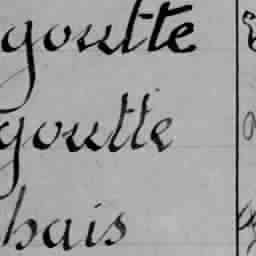 goutte
goutte
hais